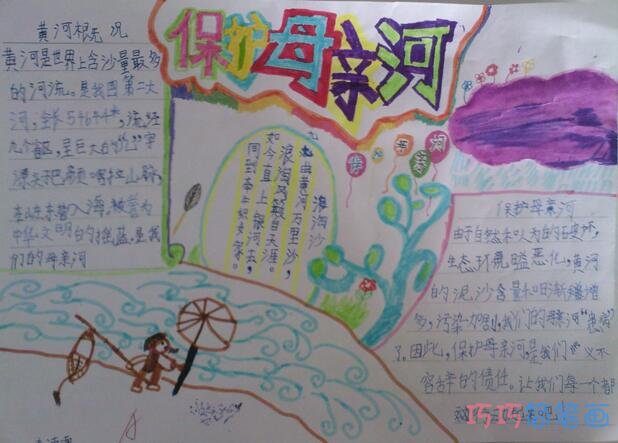 保护母亲河
黄河概况
黄河是世界上含沙量最多
的河流。是我国第二大
河,全长5464千米,流经
九个省区,呈巨大的"几"字
源头巴颜喀拉山脉,
在山东东营入海,被誉为
中华文明的摇篮,是我
们的母亲河
浪淘沙
九曲黄河万里沙,
浪淘风簸自天涯。
如今直上银河去,
同到牵牛织女家。
保护母亲河
由于自然和人为的破坏,
生态环境日益恶化,黄河
的泥沙含量和日渐增
多,污染加剧,我们的母亲河"患病"
了。因此,保护母亲河,是我们义不
容辞的责任。让我们每一个都
巧巧简笔画